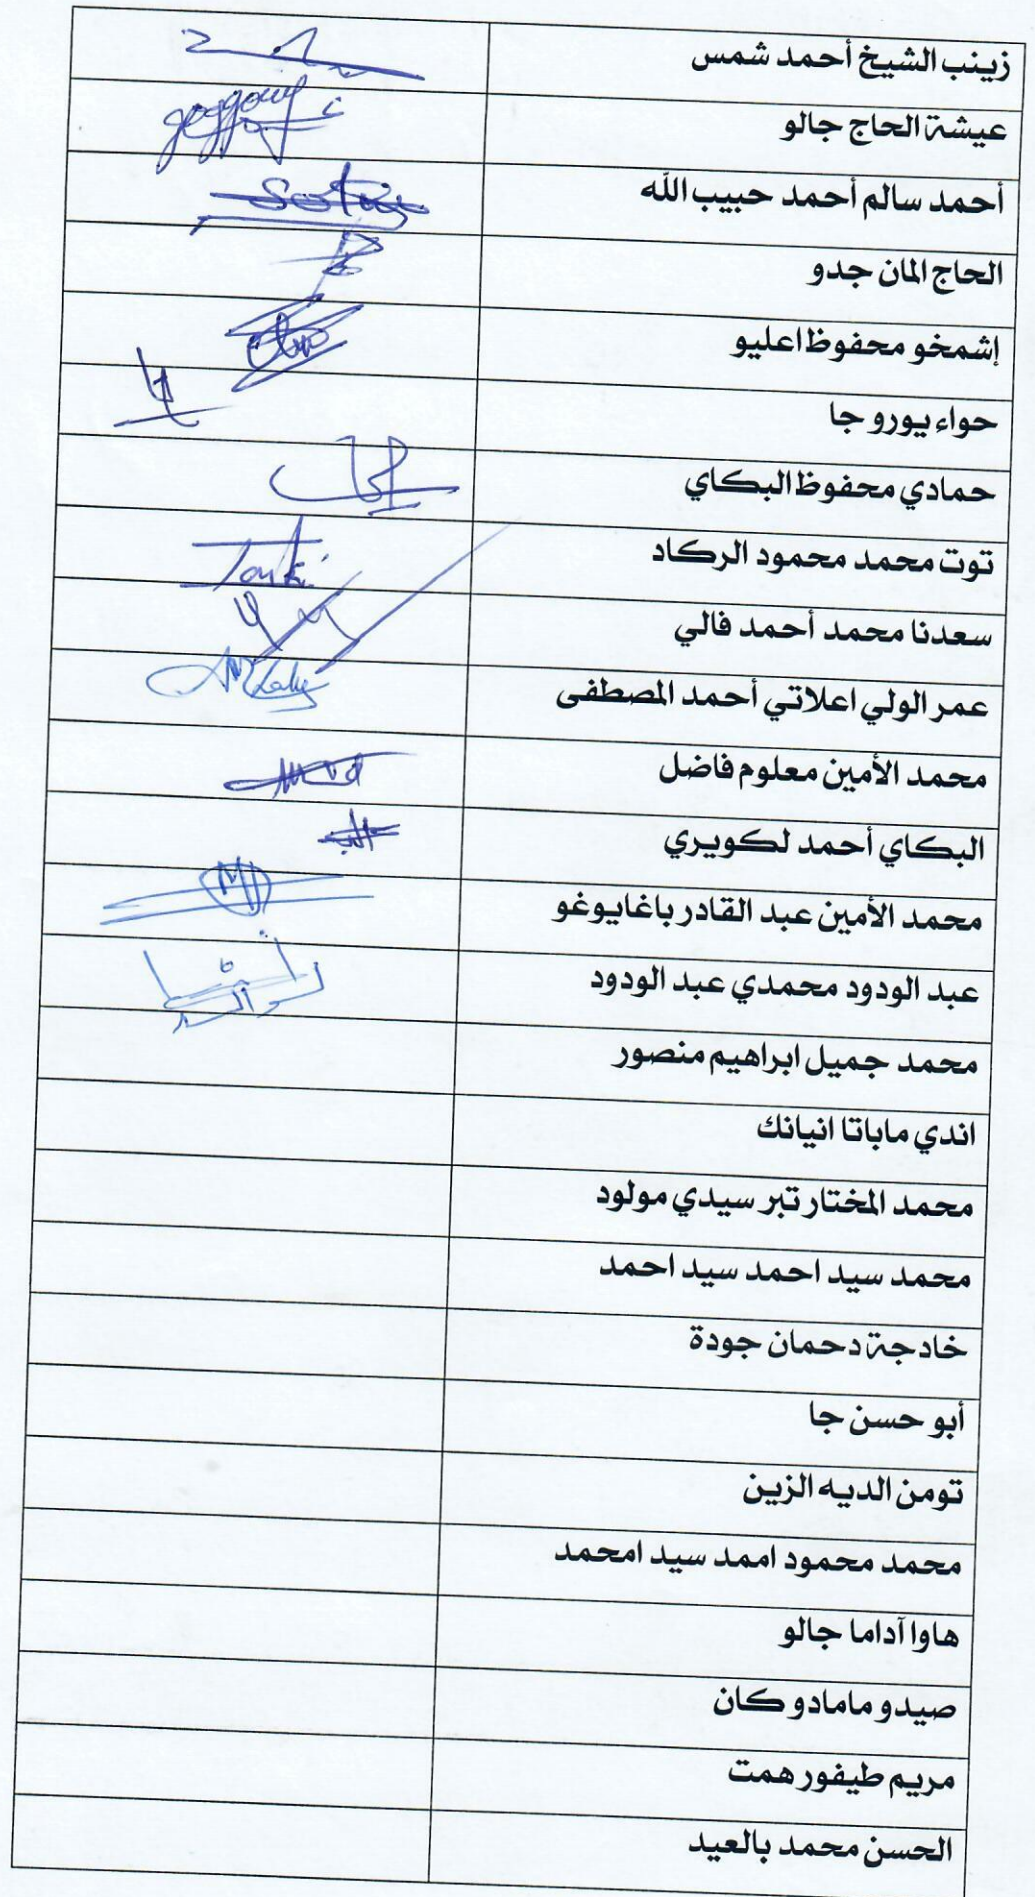 زينب الشيخ أحمد شمس
عيشة الحاج جالو
أحمد سالم أحمد حبيب الله
الحاج المان جدو
إشمخو محفوظ اعليو
حواء يورو جا
حمادي محفوظ البكاي
توت محمد محمود الركاد
سعدنا محمد أحمد فالي
عمر الولي اعلاتي أحمد المصطفى
محمد الأمين معلوم فاضل
البكاي أحمد لكويري
محمد الأمين عبد القادر باغايوغو
عبد الودود محمدي عبد الودود
محمد جميل ابراهيم منصور
اندي ماباتا انيانك
محمد المختار تبر سيدي مولود
محمد سيد احمد سيد احمد
خادجة دحمان جودة
أبو حسن جا
تومن الديه الزين
محمد محمود اممد سيد امحمد
هاوا آداما جالو
صيدو مامادو كان
مريم طيفور همت
الحسن محمد بالعيد